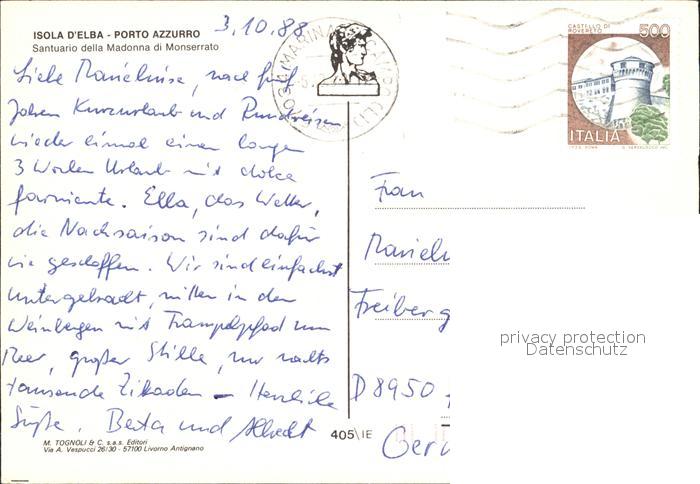 3.10.88
ISOLA D'ELBA - PORTO AZZURRO
Santuario della Madonna di Monserrato
Liebe Marieluise, nach fünf
Jahren Kurzurlaub und Rundreisen
wieder einmal einen langen
3 Wochen Urlaub mit dolce
farniente. Elba, das Wetter,
die Nachsaison sind dafür
wie geschaffen. Wir sind einfachst
untergebracht, mitten in den
Weinbergen mit Trampelpfad zum
Meer, großer Stille, nur nachts
tausende Zikaden – Herzliche
Grüße. Berta und Albrecht
M. TOGNOLI & C. s.a.s. Editori
Via A. Vespucci 26/30 - 57100 Livorno Antignano
405\IE
CASTELLO DI
ROVERETO
500
ITALIA
MARINA
Frau
Mariel
Freiberg
D 8950
Ger
privacy protection
Datenschutz